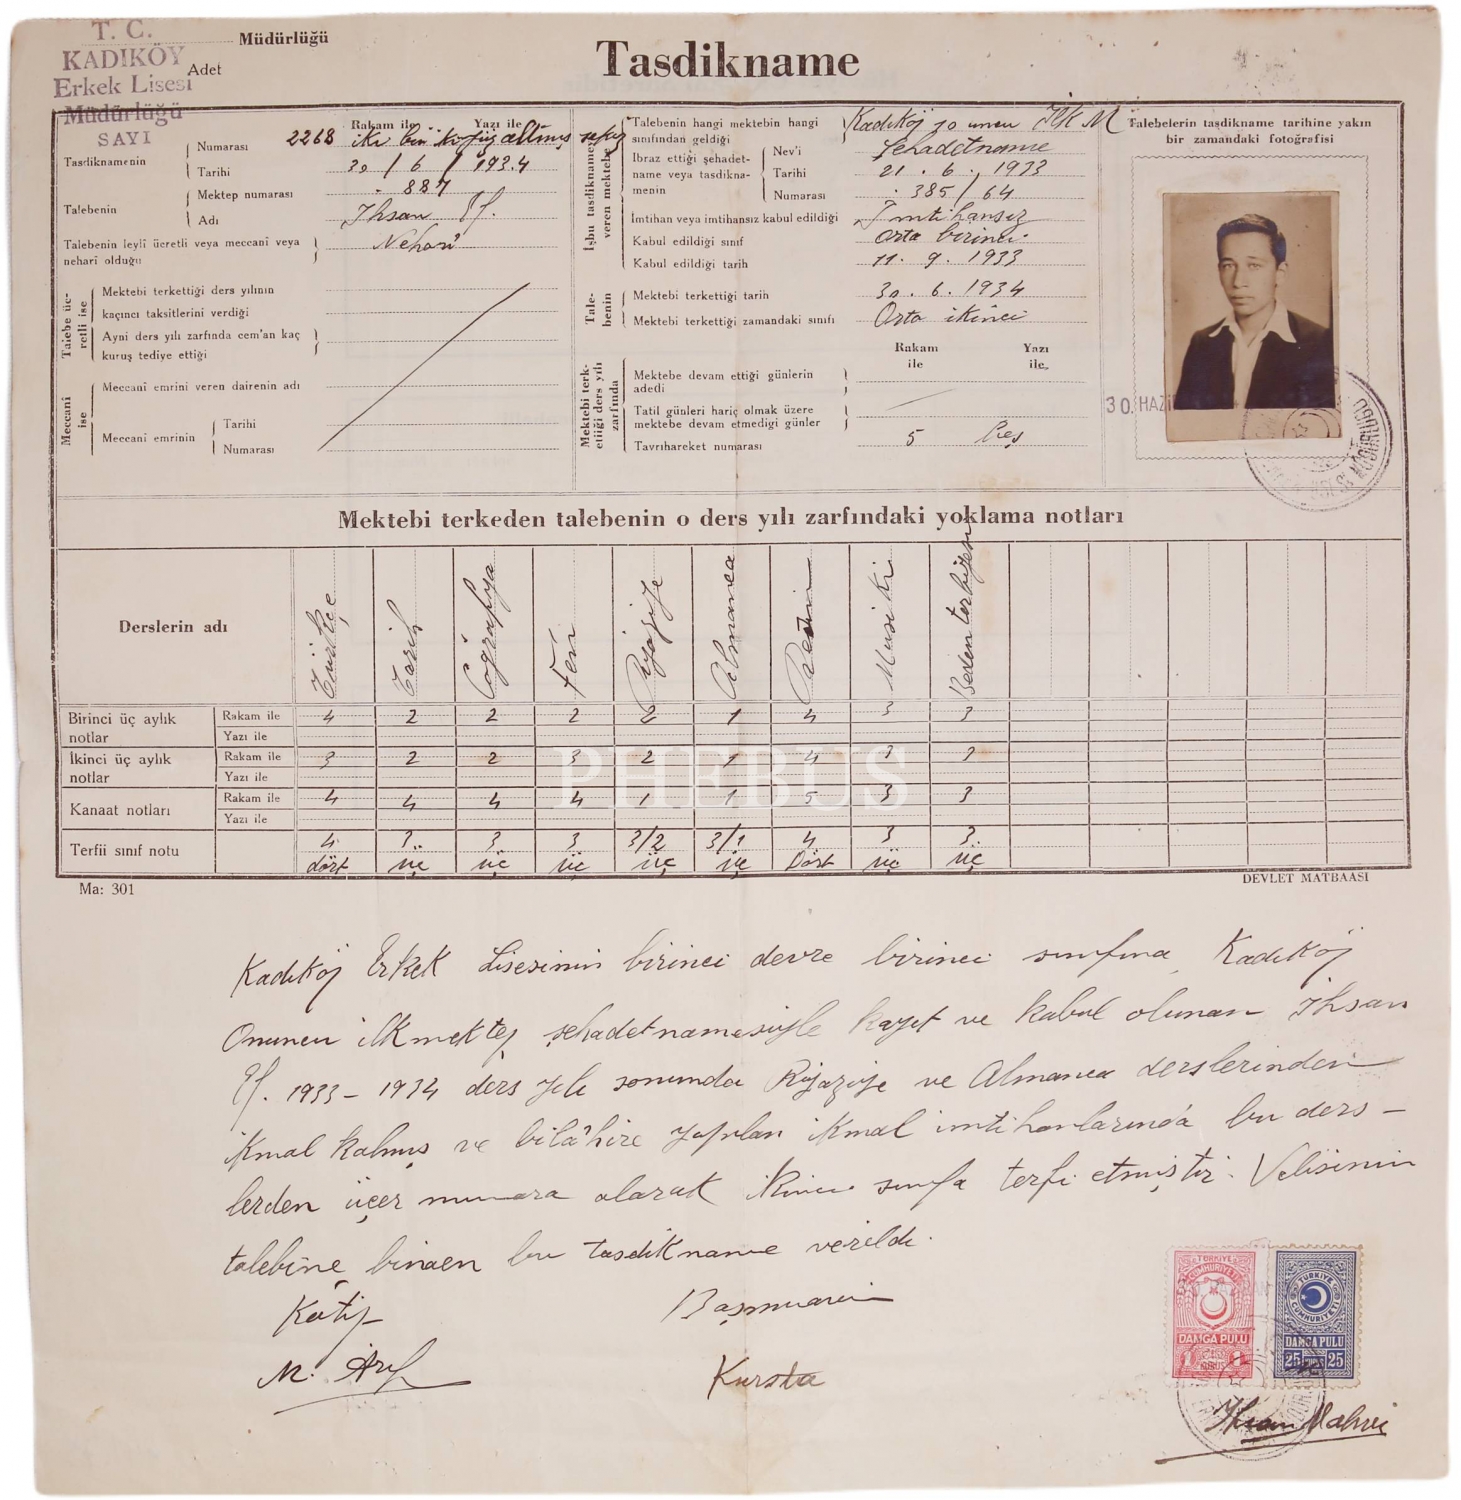 T. C.
KADIKÖY
Erkek Lisesi
Müdürlüğü
SAYI
Müdürlüğü
Adet
Tasdikname
Rakam ile Yazı ile
Tasdiknamenin
Numarası 2268 iki bin iki yüz altmış sekiz
Tarihi 30 / 6 / 1934
Talebenin
Mektep numarası 887
Adı İhsan Ef.
Talebenin leylî ücretli veya meccanî veya
neharî olduğu Neharî
Talebe üc-
retli ise
Mektebi terkettiği ders yılının
kaçıncı taksitlerini verdiği
Ayni ders yılı zarfında cem'an kaç
kuruş tediye ettiği
Meccanî
ise
Meccanî emrini veren dairenin adı
Meccanî emrinin
Tarihi
Numarası
İşbu tasdiknameyi
veren mektebe
Talebenin hangi mektebin hangi
sınıfından geldiği Kadıköy 10 uncu İlk M
İbraz ettiği şehadet-
name veya tasdikna-
menin
Nev'i Şehadetname
Tarihi 21 . 6 . 1933
Numarası 385 / 64
İmtihan veya imtihansız kabul edildiği İmtihansız
Kabul edildiği sınıf Orta birinci
Kabul edildiği tarih 11 . 9 . 1933
Tale-
benin
Mektebi terkettiği tarih 30 . 6 . 1934
Mektebi terkettiği zamandaki sınıfı Orta ikinci
Rakam Yazı
ile ile
Mektebi terk-
ettiği ders yılı
zarfında
Mektebe devam ettiği günlerin
adedi
Tatil günleri hariç olmak üzere
mektebe devam etmediği günler
Tavrıhareket numarası 5 Beş
Talebelerin tasdikname tarihine yakın
bir zamandaki fotoğrafisi
30 HAZİ
Mektebi terkeden talebenin o ders yılı zarfındaki yoklama notları
Derslerin adı Türkçe Tarih Coğrafya Fen Riyaziye Almanca Resim Musiki Beden terbiyesi
Birinci üç aylık
notlar
Rakam ile 4 2 2 2 2 1 4 3 3
Yazı ile
İkinci üç aylık
notlar
Rakam ile 3 2 2 3 2 1 4 3 3
Yazı ile
Kanaat notları
Rakam ile 4 4 4 4 1 1 5 3 3
Yazı ile
Terfii sınıf notu 4 3 3 3 3/2 3/1 4 3 3
dört üç üç üç üç üç Dört üç üç
PHEBUS
Ma: 301
DEVLET MATBAASI
Kadıköy Erkek Lisesinin birinci devre birinci sınıfına Kadıköy
Onuncu ilkmektep şehadetnamesiyle kayıt ve kabul olunan İhsan
Ef. 1933-1934 ders yılı sonunda Riyaziye ve Almanca derslerinden
ikmal kalmış ve bilâhire yapılan ikmal imtihanlarında bu ders-
lerden üçer numara alarak ikinci sınıfa terfi etmiştir. Velisinin
talebine binaen bu tasdikname verildi.
Kâtip Başmuavin
M. Arif
TÜRKİYE
CUMHURİYETİ
DAMGA PULU
1 KURUŞ 1
TÜRKİYE
CUMHURİYETİ
DAMGA PULU
25 KURUŞ 25